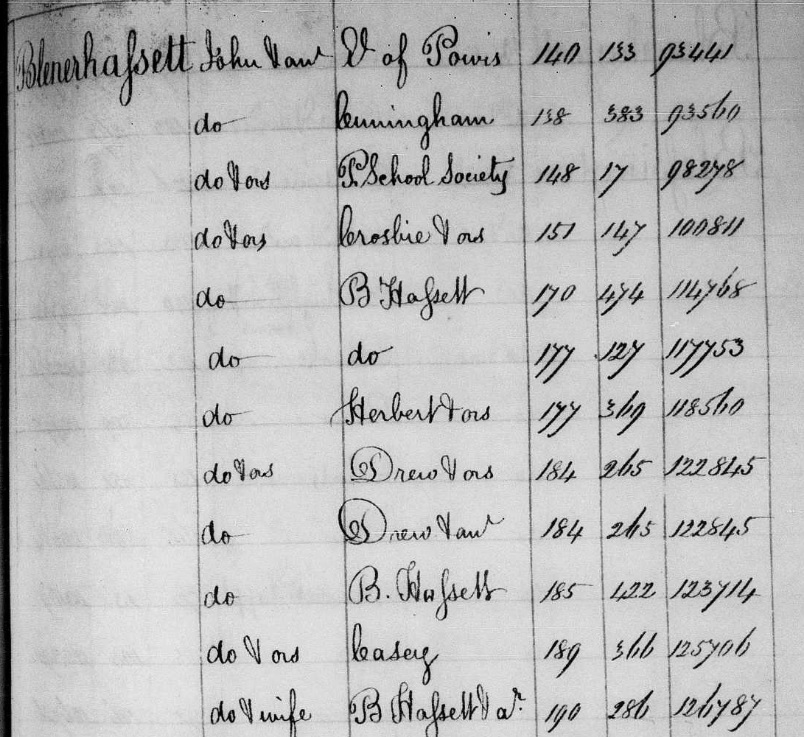 Blenerhassett John & anr V of Powis 140 133 93441
do Cunningham 138 383 93560
do & ors P. School Society 148 17 98278
do & ors Crosbie & ors 151 147 100811
do B Hassett 170 474 114768
do do 177 127 117753
do Herbert & ors 177 369 118560
do & ors Drew & ors 184 265 122845
do Drew & anr 184 265 122845
do B. Hassett 185 422 123714
do & ors Casey 189 366 125706
do & wife B Hassett & ar 190 286 126787